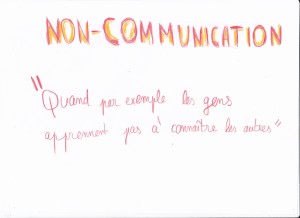 NON-COMMUNICATION
"Quand par exemple les gens
apprennent pas à connaître les autres"